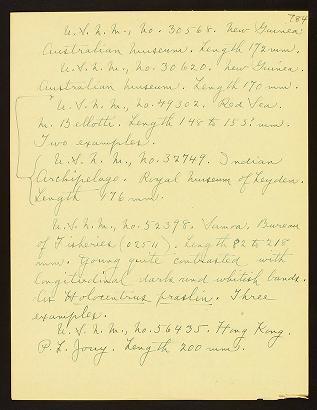 784
U.S.N.M., No. 30568. New Guinea.
Australian Museum. Length 172 mm.
U.S.N.M., No. 30620. New Guinea.
Australian Museum. Length 170 mm.
U.S.N.M., No. 49302. Red Sea.
M. Bellotti. Length 148 to 153? mm.
Two examples.
U.S.N.M., No. 32749. Indian
Archipelago. Royal Museum of Leyden.
Length 176 mm.
U.S.N.M., No. 52398. Samoa. Bureau
of Fisheries (02511). Length 82 to 218
mm. Young quite contrasted with
longitudinal dark and whitish bands.
As Holocentrus praslin. Three
examples.
U.S.N.M., No. 56435. Hong Kong.
P. L. Jouy. Length 200 mm.